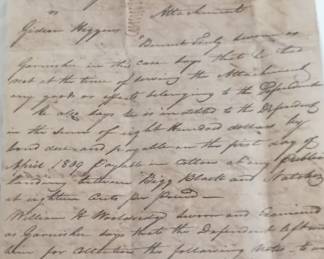 vs Attachment
Gideon Higgins
Bennet Early sworn as
Garnishee in this case says that he has
not at the time of serving the Attachment
any goods or effects belonging to the Defendant
He also says he is indebted to the Defendant
in the sum of eight Hundred dollars by
bond due and payable on the first day of
April 1809 payable in Cotton at any Public
landing between Bigg Black and Natchez
at eighteen Cents per pound
William H Wooldredge sworn and Examined
as Garnishee says that the Defendant left with
him for collection the following notes to wit